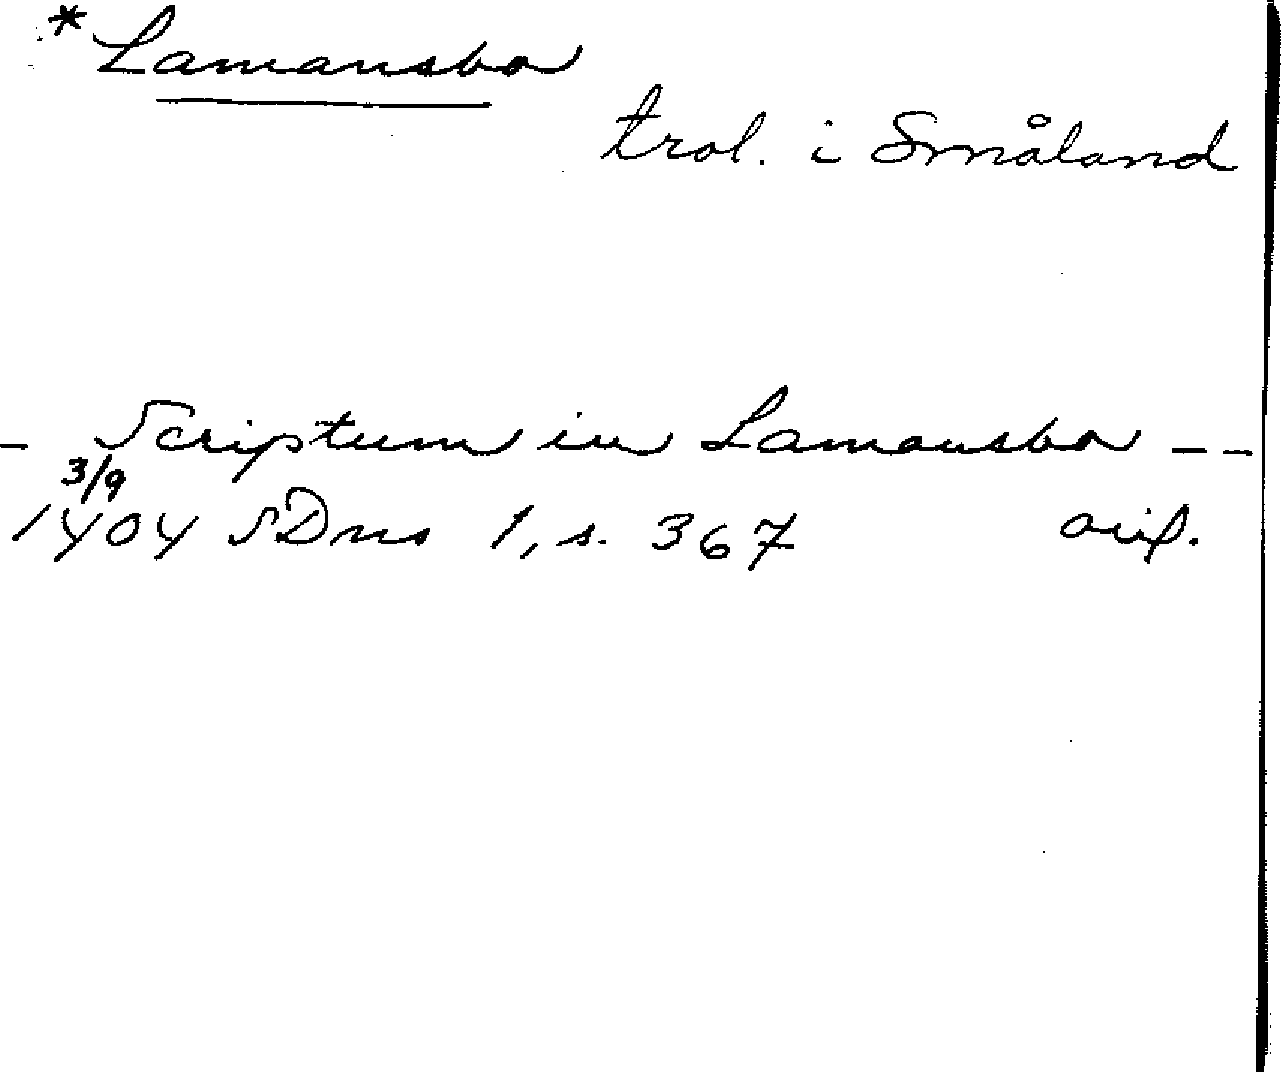 *Lamansbo
trol. i Småland
- Scriptum in Lamansbo --
3/9
1404 SDns 1, s. 367 orig.